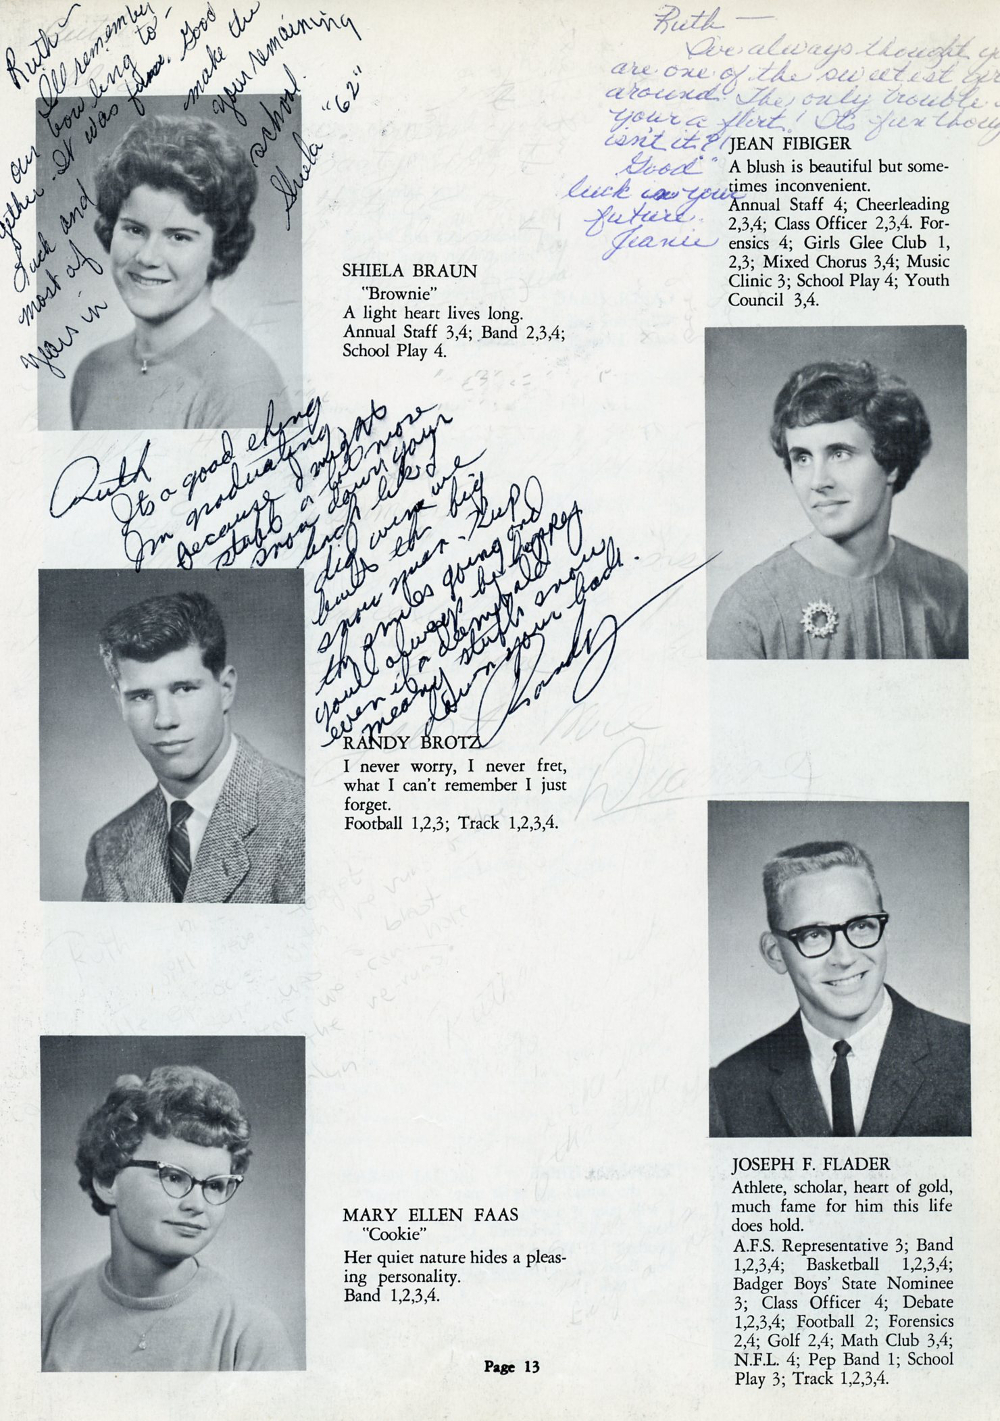 Ruth -
I'll remember
our bowling to-
gether. It was fun. Good
luck and make the
most of your remaining
years in school.
Shiela "62"
Ruth -
I've always thought
are one of the sweetest
around. The only trouble
your a flirt! It's fun though
isn't it?!
"Good"
luck in your
future.
Jeanie
JEAN FIBIGER
A blush is beautiful but some-
times inconvenient.
Annual Staff 4; Cheerleading
2,3,4; Class Officer 2,3,4. For-
ensics 4; Girls Glee Club 1,
2,3; Mixed Chorus 3,4; Music
Clinic 3; School Play 4; Youth
Council 3,4.
SHIELA BRAUN
"Brownie"
A light heart lives long.
Annual Staff 3,4; Band 2,3,4;
School Play 4.
Ruth
Its a good thing
I'm graduating
because I might
stuff a bit more
snow down your
back like I
did when we
built the big
snow man. Keep
the smiles going and
you'll always be happy
even if a
meany stuffs snow
down your back.
Randy
RANDY BROTZ
I never worry, I never fret,
what I can't remember I just
forget.
Football 1,2,3; Track 1,2,3,4.
MARY ELLEN FAAS
"Cookie"
Her quiet nature hides a pleas-
ing personality.
Band 1,2,3,4.
JOSEPH F. FLADER
Athlete, scholar, heart of gold,
much fame for him this life
does hold.
A.F.S. Representative 3; Band
1,2,3,4; Basketball 1,2,3,4;
Badger Boys' State Nominee
3; Class Officer 4; Debate
1,2,3,4; Football 2; Forensics
2,4; Golf 2,4; Math Club 3,4;
N.F.L. 4; Pep Band 1; School
Play 3; Track 1,2,3,4.
Page 13